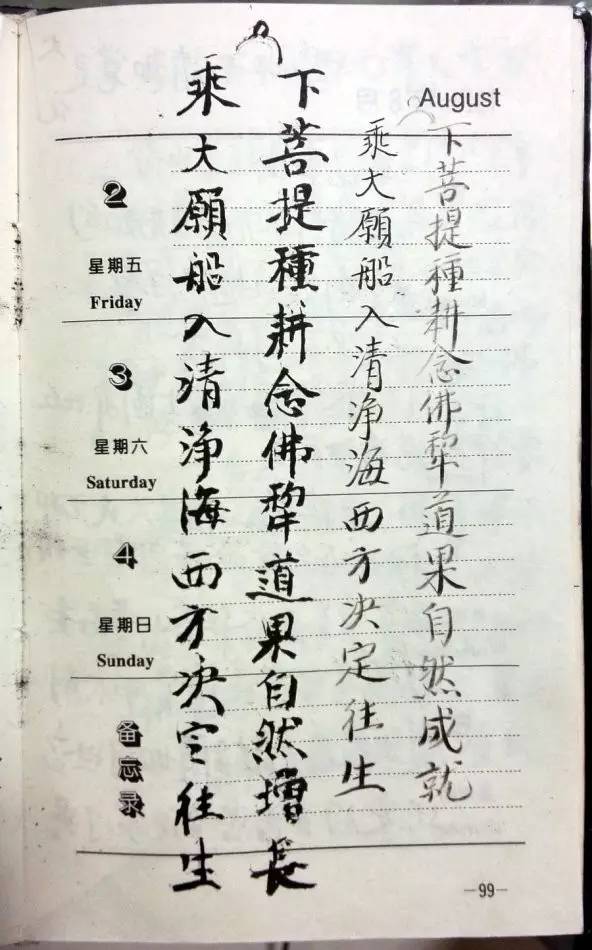 August
下菩提種耕念佛犂道果自然成就
乘大願船入清淨海西方決定往生
下菩提種耕念佛犂道果自然增長
乘大願船入清淨海西方決定往生
2
星期五
Friday
3
星期六
Saturday
4
星期日
Sunday
备忘录
—99—